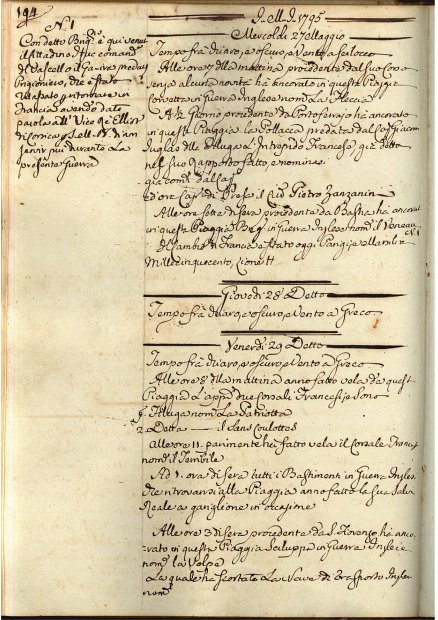 194
N. 1
Con detto Brig.o è qui venuto
il Cittadino
di Vascello il
Prigioniero, che è stato
rilasciato, e ritornare in
Francia avendo dato
parola all' Vice Rè Elliot
di Corsica
servir più durante La
presente Guerra
I. M. I. 1795
Mercoldi 27 Maggio
Tempo frà chiaro, e oscuro, e Vento a Scilocco
Alle ore 7 della mattina procedente dal suo Corso
senza alcuna novità hà ancorato in questa Piaggia
Corvetta in Guerra Inglese nom.a La Fleccia
A ½ Giorno procedente da Portoferajo hà ancorato
in questa Piaggia la Pollacca predata dal
Intrepido Francese che detto
nel suo Rapporto fatto, e nominasi
già com.a dal Cap.
ed ora Cap. di Presa il Citt. Pietro Zanzanin
Alle ore sette di sera procedente da Bastia hà ancorato
in questa Piaggia Brig. in Guerra Inglese nom.
N. 1
Il Cambio di Francia è stato oggi Parigi, e
Mille cinquecento,
Giovodi 28 Detto
Tempo frà chiaro, e oscuro, e Vento a Greco
Venerdi 29 Detto
Tempo frà chiaro, e oscuro, e Vento a Greco
Alle ore 8 della mattina anno fatto vela da questa
Piaggia L'app.i due Corsali Francesi, e sono
1. Filluga nom. La Patriotta
2. Detta — il Sans Coulottes
Alle ore 11. parimente hà fatto vela il Corsale Francese
nom.o il Terribile
Ad 1. ora di Sera tutti i Bastimenti in Guerra Inglesi
che ritrovansi alla Piaggia anno fatto la sua Salva
Reale a
in occasione
Alle ore 3 di sera procedente da S. Fiorenzo hà anco-
rato in questa Piaggia Sciluppa in Guerra Inglese
nom. la Volpe
La quale hà scortato La Nave di Trasporto Inglese
nom.